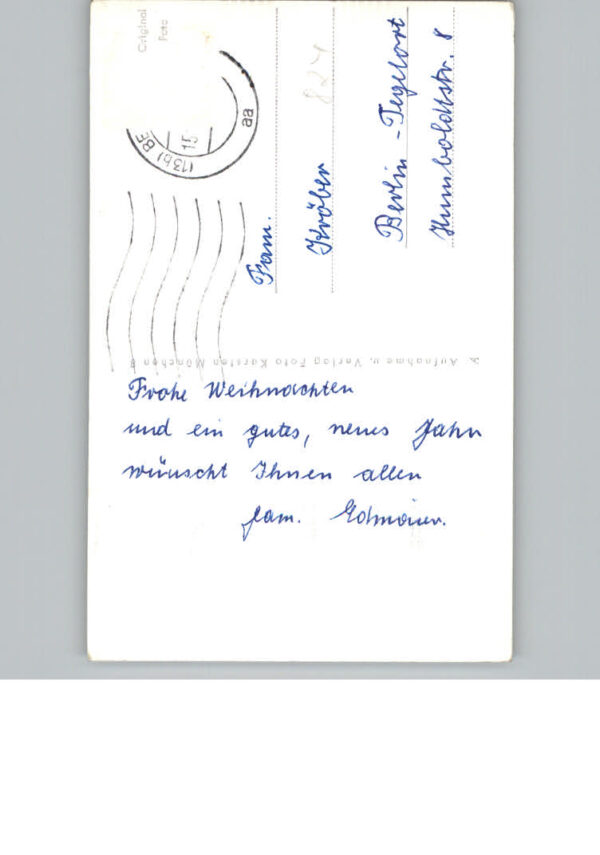 Original
Foto
(13b) BE
15
aa
824
Fam.
Kröber
Berlin - Tegelort
Humboldtstr. 8
Aufnahme u. Verlag Foto Karsten München 8
Frohe Weihnachten
und ein gutes, neues Jahr
wünscht Ihnen allen
Fam.